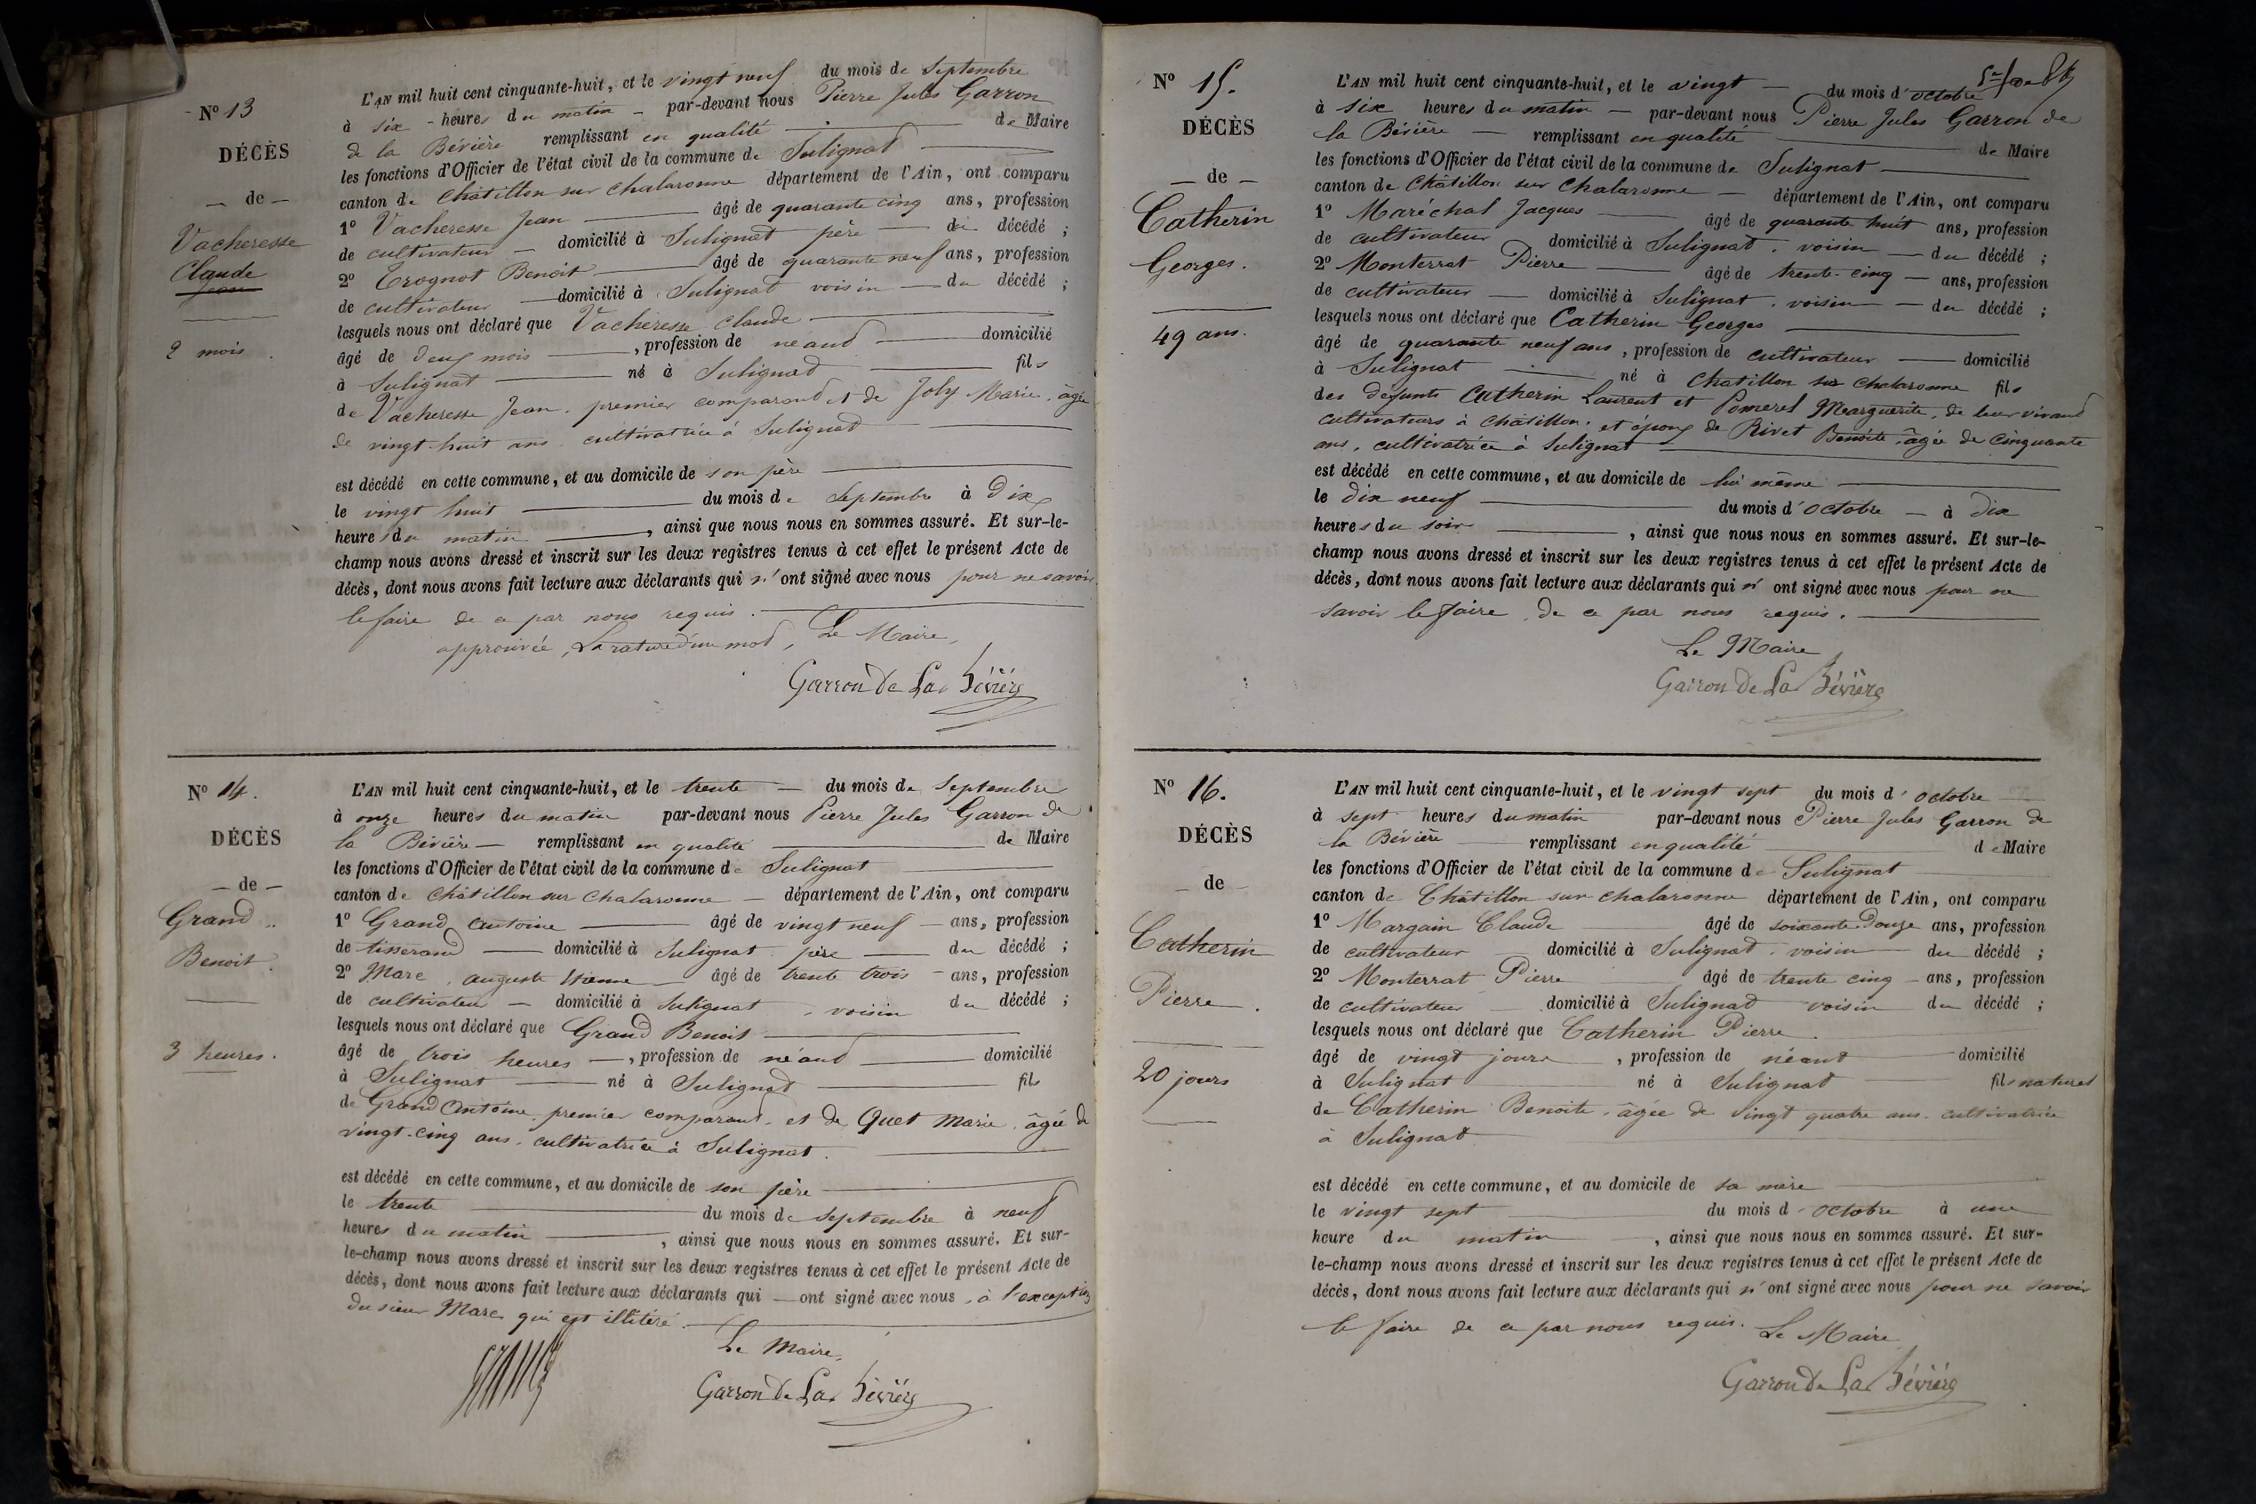 N° 13
DÉCÈS
de
Vacheresse
Claude
2 mois
L'AN mil huit cent cinquante-huit, et le vingt neuf du mois de Septembre
à six heures du matin par-devant nous Pierre Jules Garron
de la Bévière remplissant en qualité de Maire
les fonctions d'Officier de l'état civil de la commune de Sulignat
canton de Châtillon sur Chalaronne département de l'Ain, ont comparu
1° Vacheresse Jean âgé de quarante cinq ans, profession
de cultivateur domicilié à Sulignat père du décédé ;
2° Trognot Benoit âgé de quarante neuf ans, profession
de cultivateur domicilié à Sulignat voisin du décédé ;
lesquels nous ont déclaré que Vacheresse Claude
âgé de deux mois, profession de néant domicilié
à Sulignat né à Sulignat fils
de Vacheresse Jean, premier comparant et de Joly Marie, âgée
de vingt-huit ans, cultivatrice à Sulignat
est décédé en cette commune, et au domicile de son père
le vingt huit du mois de Septembre à dix
heures du matin, ainsi que nous nous en sommes assuré. Et sur-le-
champ nous avons dressé et inscrit sur les deux registres tenus à cet effet le présent Acte de
décès, dont nous avons fait lecture aux déclarants qui n'ont signé avec nous pour ne savoir
le faire de ce par nous requis.
approuvée, La rature d'un mot, Le Maire,
Garron De La Bévière
N° 14.
DÉCÈS
de
Grand
Benoit.
3 heures.
L'AN mil huit cent cinquante-huit, et le trente du mois de Septembre
à onze heures du matin par-devant nous Pierre Jules Garron de
la Bévière remplissant en qualité de Maire
les fonctions d'Officier de l'état civil de la commune de Sulignat
canton de Châtillon sur Chalaronne département de l'Ain, ont comparu
1° Grand Antoine âgé de vingt neuf ans, profession
de tisserand domicilié à Sulignat père du décédé ;
2° Marc, auguste âgé de trente trois ans, profession
de cultivateur domicilié à Sulignat, voisin du décédé ;
lesquels nous ont déclaré que Grand Benoit
âgé de trois heures, profession de néant domicilié
à Sulignat né à Sulignat fils
de Grand Antoine, premier comparant, et de Quet Marie, âgée de
vingt-cinq ans, cultivatrice à Sulignat.
est décédé en cette commune, et au domicile de son père
le trente du mois de septembre à neuf
heures du matin, ainsi que nous nous en sommes assuré. Et sur-
le-champ nous avons dressé et inscrit sur les deux registres tenus à cet effet le présent Acte de
décès, dont nous avons fait lecture aux déclarants qui ont signé avec nous, à l'exception
du sieur Marc qui est illitéré.
Le Maire,
Garron De La Bévière
N° 15.
DÉCÈS
de
Catherin
Georges.
49 ans.
L'AN mil huit cent cinquante-huit, et le vingt du mois d'octobre
à six heures du matin par-devant nous Pierre Jules Garron de
la Bévière remplissant en qualité de Maire
les fonctions d'Officier de l'état civil de la commune de Sulignat
canton de Châtillon sur Chalaronne département de l'Ain, ont comparu
1° Maréchal Jacques âgé de quarante huit ans, profession
de cultivateur domicilié à Sulignat, voisin du décédé ;
2° Monterrat Pierre âgé de trente-cinq ans, profession
de cultivateur domicilié à Sulignat, voisin du décédé ;
lesquels nous ont déclaré que Catherin Georges
âgé de quarante neuf ans, profession de cultivateur domicilié
à Sulignat né à Chatillon sur Chalaronne fils
des défunts Catherin Laurent et Pomerel Marguerite, de leur vivant
cultivateurs à Châtillon, et époux de Rivet Benoite, âgée de cinquante
ans, cultivatrice à Sulignat
est décédé en cette commune, et au domicile de lui même
le dix neuf du mois d'octobre à dix
heures du soir, ainsi que nous nous en sommes assuré. Et sur-le-
champ nous avons dressé et inscrit sur les deux registres tenus à cet effet le présent Acte de
décès, dont nous avons fait lecture aux déclarants qui n'ont signé avec nous pour ne
savoir le faire, de ce par nous requis.
Le Maire
Garron De La Bévière
N° 16.
DÉCÈS
de
Catherin
Pierre.
20 jours
L'AN mil huit cent cinquante-huit, et le vingt sept du mois d'octobre
à sept heures du matin par-devant nous Pierre Jules Garron de
la Bévière remplissant en qualité de Maire
les fonctions d'Officier de l'état civil de la commune de Sulignat
canton de Châtillon sur Chalaronne département de l'Ain, ont comparu
1° Margain Claude âgé de soixante Douze ans, profession
de cultivateur domicilié à Sulignat, voisin du décédé ;
2° Monterrat Pierre âgé de trente cinq ans, profession
de cultivateur domicilié à Sulignat voisin du décédé ;
lesquels nous ont déclaré que Catherin Pierre
âgé de vingt jours, profession de néant domicilié
à Sulignat né à Sulignat fils naturel
de Catherin Benoite, âgée de vingt quatre ans, cultivatrice
à Sulignat
est décédé en cette commune, et au domicile de sa mère
le vingt sept du mois d'octobre à une
heure du matin, ainsi que nous nous en sommes assuré. Et sur-
le-champ nous avons dressé et inscrit sur les deux registres tenus à cet effet le présent Acte de
décès, dont nous avons fait lecture aux déclarants qui n'ont signé avec nous pour ne savoir
le faire de ce par nous requis. Le Maire
Garron De La Bévière